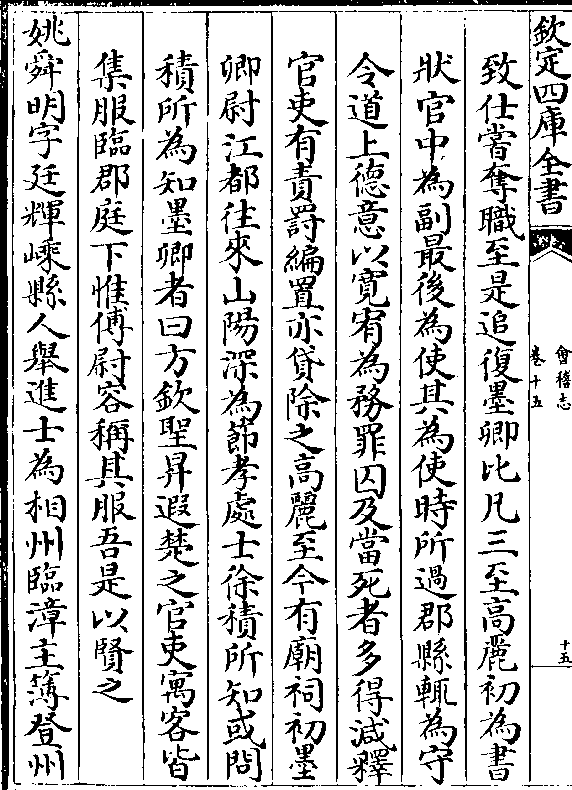 欽定四庫全書
會稽志
卷十五
十五
致仕嘗奪職至是追復墨卿比凡三至高麗初為書
狀官中為副最後為使其為使時所過郡縣輒為守
令道上德意以寛宥為務罪囚及當死者多得減釋
官吏有責罰編置亦貸除之高麗至今有廟祠初墨
卿尉江都往來山陽深為節孝處士徐積所知或問
積所為知墨卿者曰方欽聖昇遐楚之官吏寓客皆
集服臨郡庭下惟傅尉容稱其服吾是以賢之
姚舜明字廷輝嵊縣人舉進士為相州臨漳主簿登州